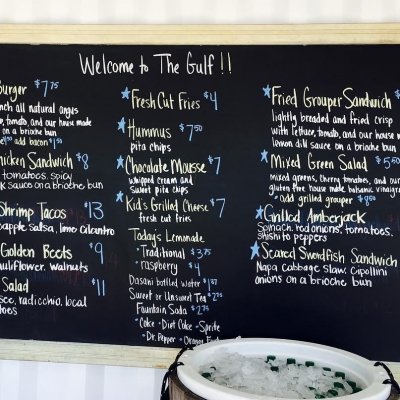 Welcome to The Gulf !!
Burger $7.75
all natural angus
tomato, and our house made
on a brioche bun
add bacon $1.50
Chicken Sandwich $8
tomatoes, spicy
sauce on a brioche bun
Shrimp Tacos $13
apple salsa, lime cilantro
Golden Beets $9
cauliflower, walnuts
Salad $11
radicchio, local
Fresh Cut Fries $4
Hummus $7.50
pita chips
Chocolate Mousse $7
whipped cream and
sweet pita chips
Kid's Grilled Cheese $7
fresh cut fries
Today's Lemonade
· Traditional $3.75
· raspberry $4
Dasani bottled water $1.37
Sweet or Unsweet Tea $2.75
Fountain Soda $2.75
· Coke · Diet Coke · Sprite
· Dr. Pepper · Orange
Fried Grouper Sandwich $
lightly breaded and fried crisp
with lettuce, tomato, and our house
lemon dill sauce on a brioche bun
Mixed Green Salad $5.50
mixed greens, cherry tomatoes, and our
gluten free house made balsamic vinaigr
· add grilled grouper $8.50
Grilled Amberjack
Spinach, red onions, tomatoes,
shishito peppers
Seared Swordfish Sandwich
Napa cabbage slaw, Cipollini
onions on a brioche bun